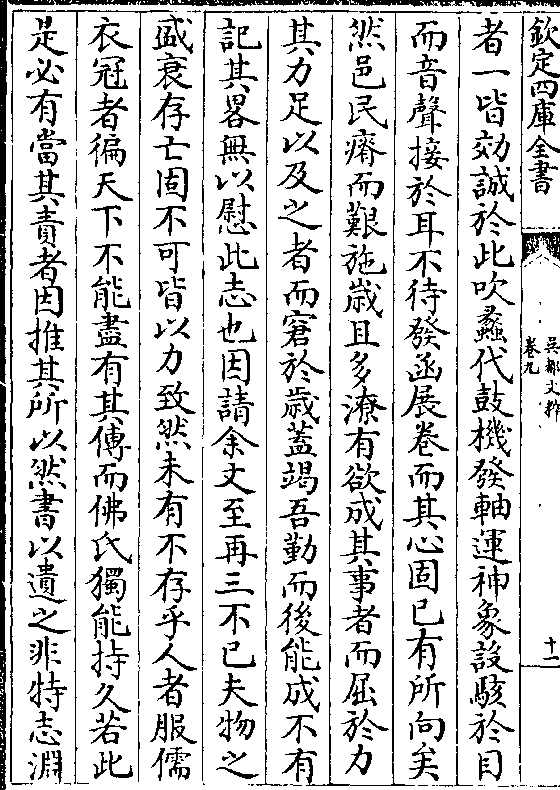 欽定四庫全書
吳都文粹
卷九
十一
者一皆効誠於此吹蠡代鼓機發軸運神象設駭於目
而音聲接於耳不待發函展卷而其心固已有所向矣
然邑民瘠而艱施歲且多潦有欲成其事者而屈於力
其力足以及之者而窘於歲蓋竭吾勤而後能成不有
記其畧無以慰此志也因請余文至再三不已夫物之
盛衰存亡固不可皆以力致然未有不存乎人者服儒
衣冠者徧天下不能盡有其傳而佛氏獨能持久若此
是必有當其責者因推其所以然書以遺之非特志淵